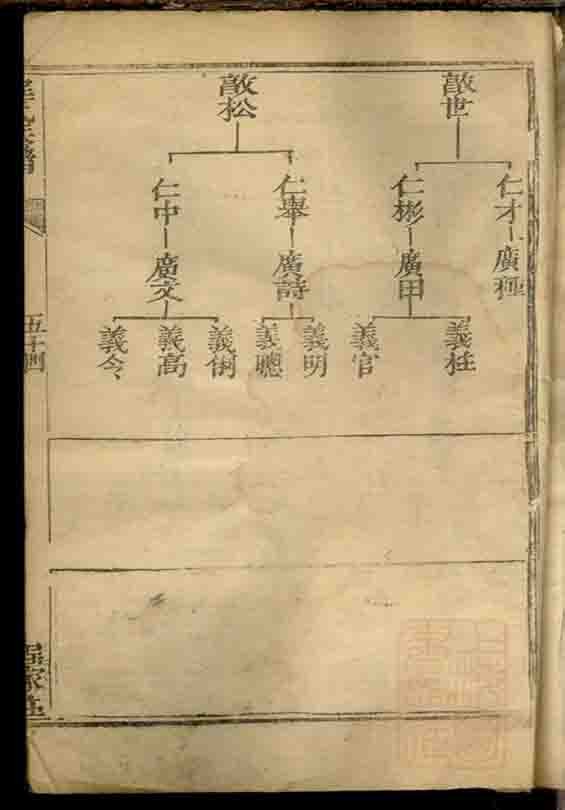 敵世
仁才
廣種
仁彬
廣甲
義任
義官
敵松
仁舉
廣詩
義明
義聰
仁中
廣文
義俐
義高
義令
五十四